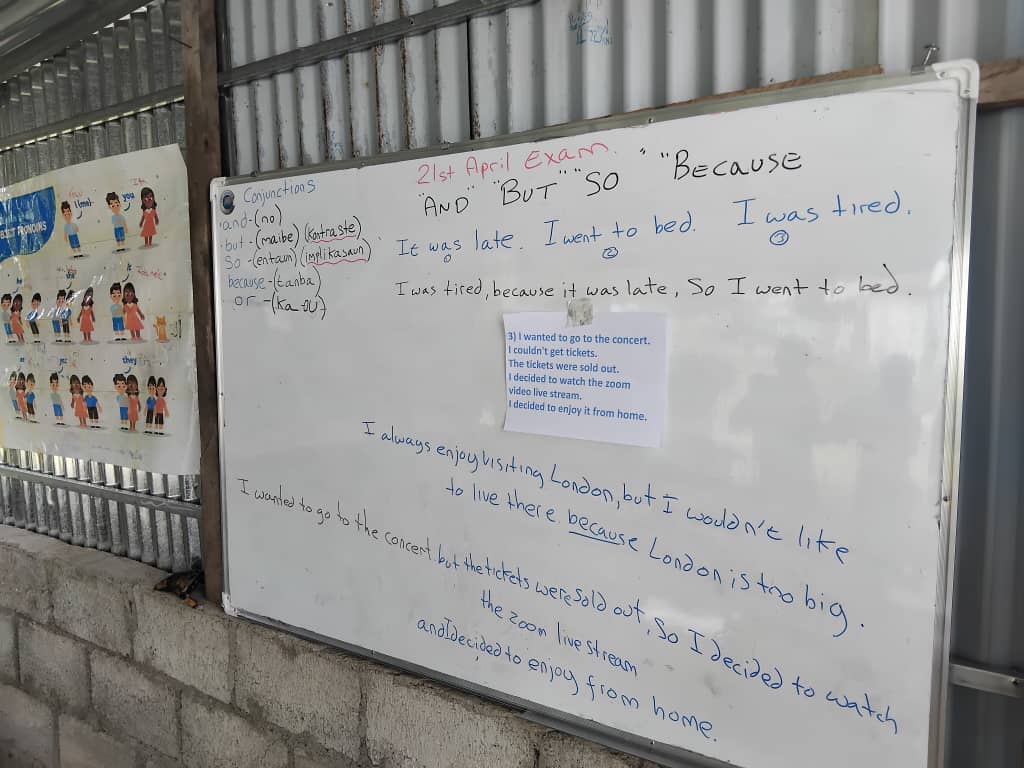 21st April Exam.
Conjunctions
and-(no)
but-(maibe) (kontraste)
So-(entaun) (implikasaun)
because-(tanba)
or-(Ka-OU)
"AND" "BUT" "SO "BECAUSE
It was late. I went to bed. I was tired.
2 3
I was tired, because it was late, So I went to bed.
3) I wanted to go to the concert.
I couldn't get tickets.
The tickets were sold out.
I decided to watch the zoom
video live stream.
I decided to enjoy it from home.
I always enjoy visiting London, but I wouldn't like
to live there because London is too big.
I wanted to go to the concert but the tickets were sold out, So I decided to watch
the zoom live stream
and I decided to enjoy from home.
BJECT PRONOUNS
I (me)
you
it
they